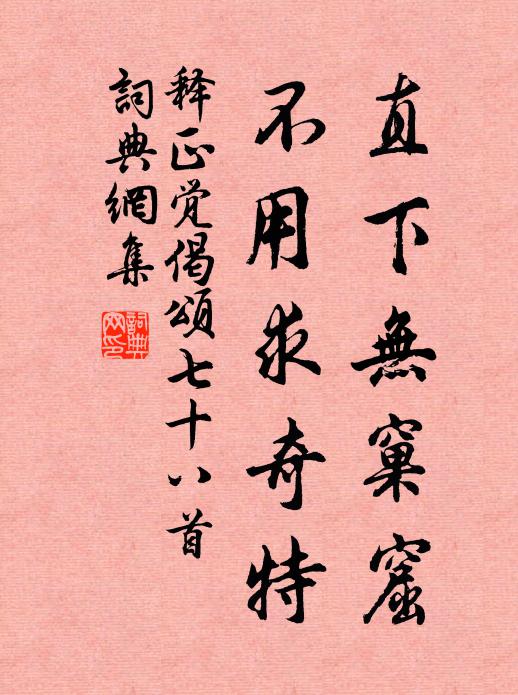 直下無窠窟
不用求奇特
释正觉偈頌七十八首
詞典網集
詞典
網印